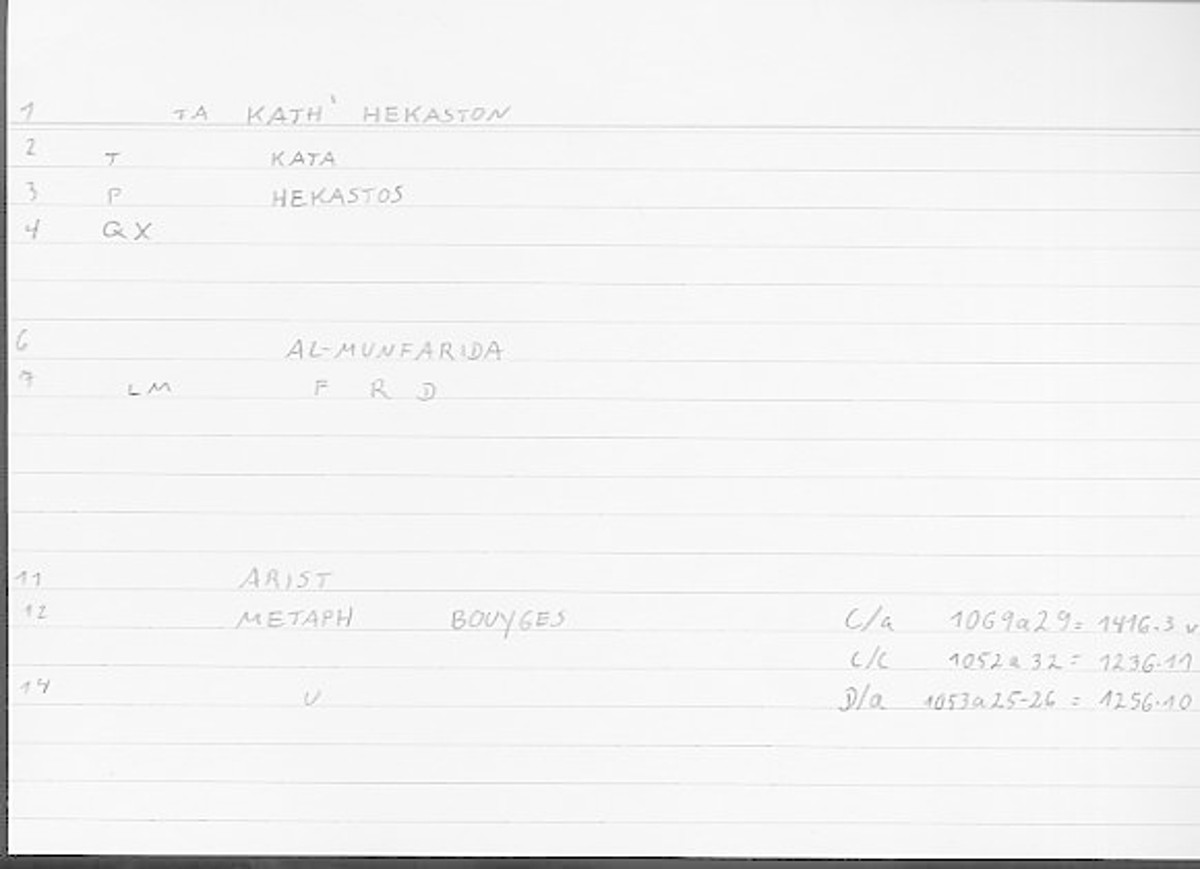 1 TA KATH' HEKASTON
2 T KATA
3 P HEKASTOS
4 QX
6 AL-MUNFARIDA
7 LM F R D
11 ARIST
12 METAPH BOUYGES C/a 1069a29= 1416.3 v
C/C 1052a32= 1236.11
14 U D/a 1053a25-26 = 1256.10